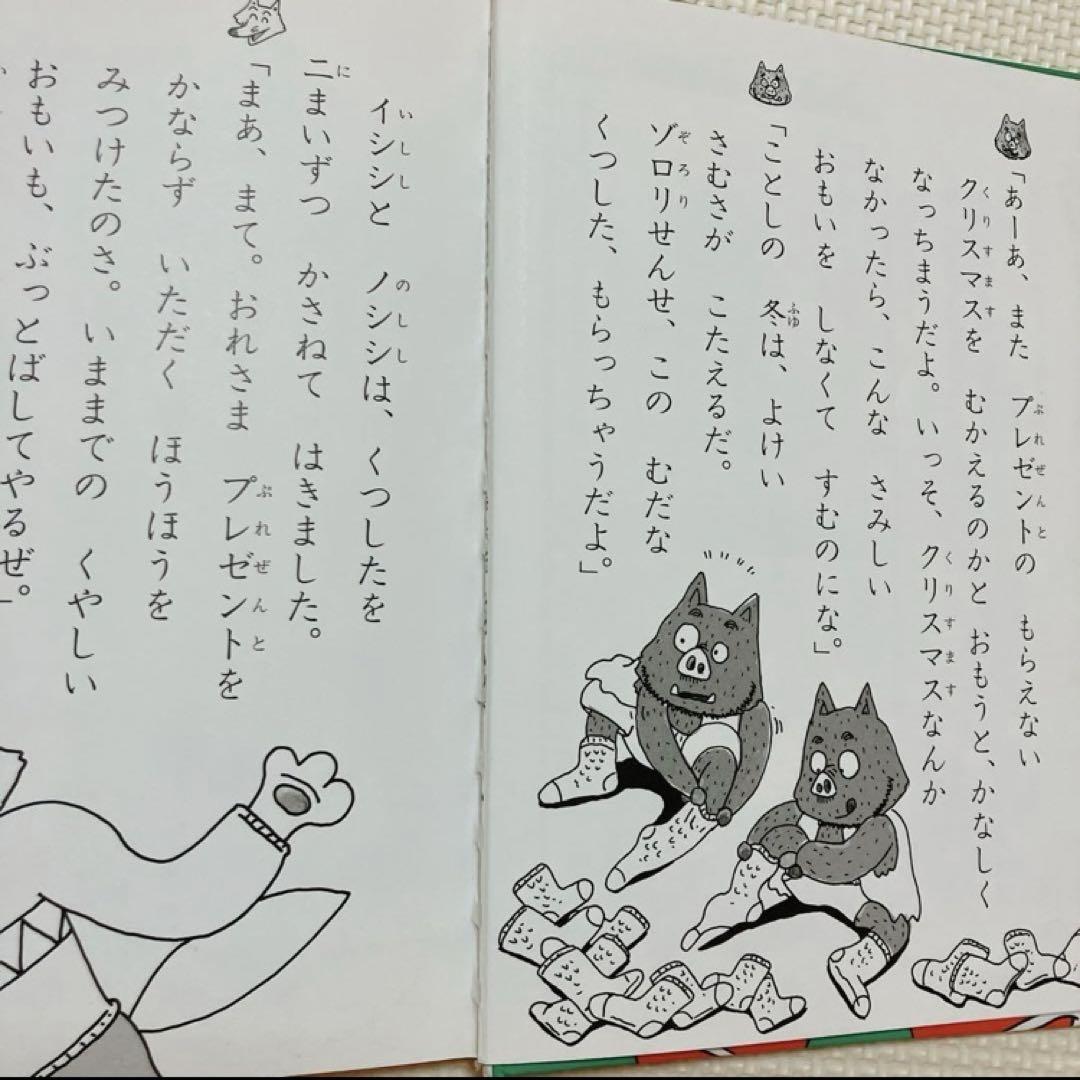 「あーあ、また プレゼントの もらえない
クリスマスを むかえるのかと おもうと、かなしく
なっちまうだよ。いっそ、クリスマスなんか
なかったら、こんな さみしい
おもいを しなくて すむのにな。」
「ことしの 冬は、よけい
さむさが こたえるだ。
ゾロリせんせ、この むだな
くつした、もらっちゃうだよ。」
イシシと ノシシは、くつしたを
二まいずつ かさねて はきました。
「まあ、まて。おれさま プレゼントを
かならず いただく ほうほうを
みつけたのさ。いままでの くやしい
おもいも、ぶっとばしてやるぜ。」